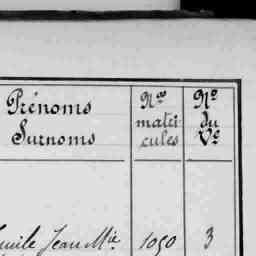 Prénoms
Surnoms
Nos
matri
cules
No
du
Ve
Jean Mie 1050 3